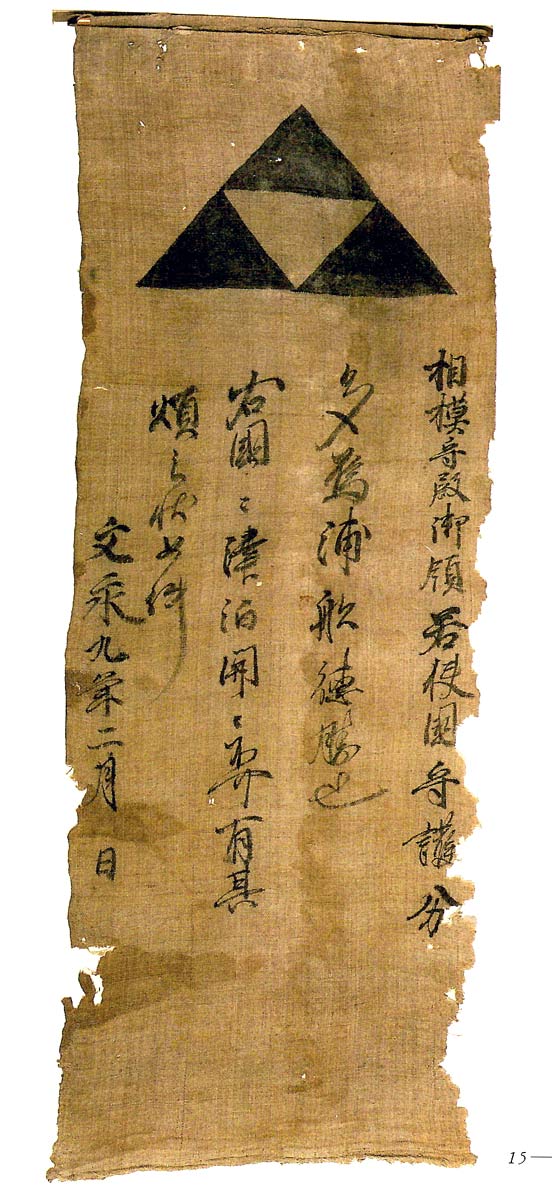 相模守殿御領若狭國守護分
多烏浦船徳勝也
右國々津泊関々不可有其
煩之状如件
文永九年二月 日
15